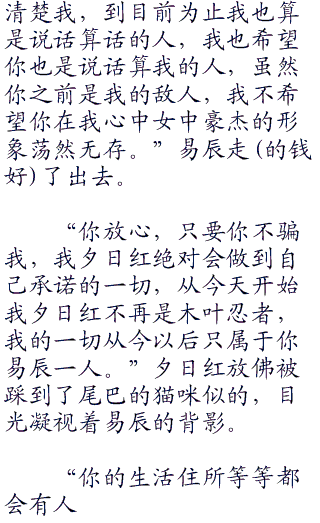 清楚我，到目前为止我也算
是说话算话的人，我也希望
你也是说话算我的人，虽然
你之前是我的敌人，我不希
望你在我心中女中豪杰的形
象荡然无存。”易辰走(的钱
好)了出去。
“你放心，只要你不骗
我，我夕日红绝对会做到自
己承诺的一切，从今天开始
我夕日红不再是木叶忍者，
我的一切从今以后只属于你
易辰一人。”夕日红放佛被
踩到了尾巴的猫咪似的，目
光凝视着易辰的背影。
“你的生活住所等等都
会有人